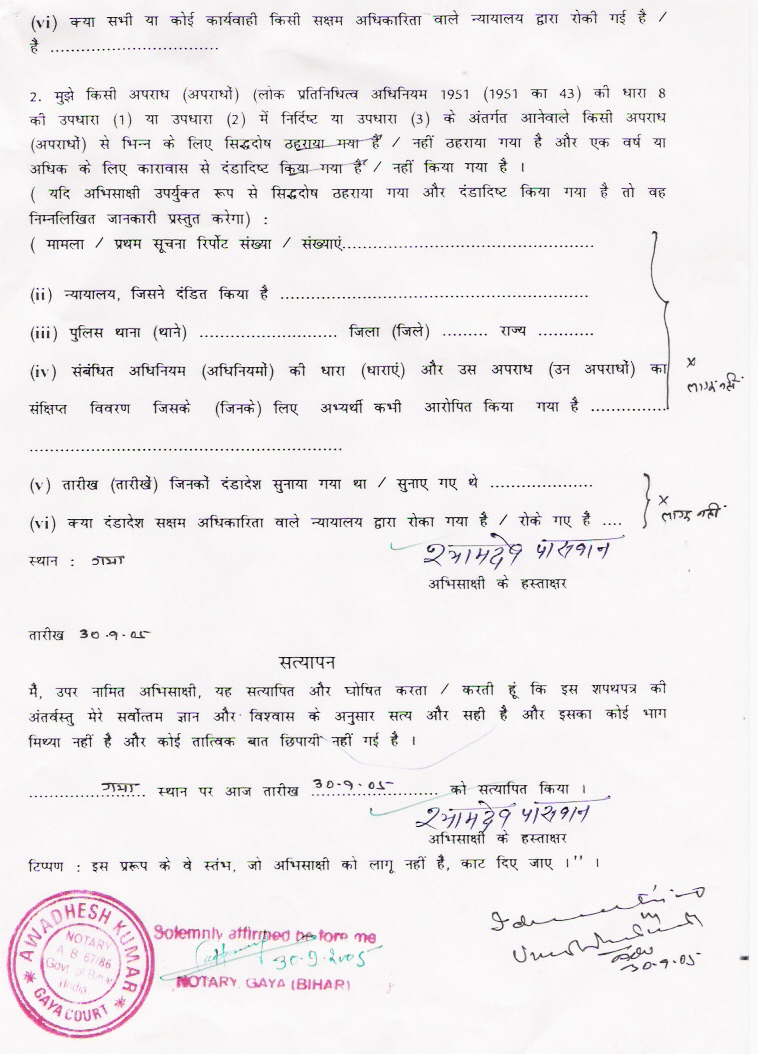 (vi) क्या सभी या कोई कार्यवाही किसी सक्षम अधिकारिता वाले न्यायालय द्वारा रोकी गई है /
हैं ..................................
2. मुझे किसी अपराध (अपराधों) (लोक प्रतिनिधित्व अधिनियम 1951 (1951 का 43) की धारा 8
की उपधारा (1) या उपधारा (2) में निर्दिष्ट या उपधारा (3) के अंतर्गत आनेवाले किसी अपराध
(अपराधों) से भिन्न के लिए सिद्धदोष ठहराया गया है / नहीं ठहराया गया है और एक वर्ष या
अधिक के लिए कारावास से दंडादिष्ट किया गया है / नहीं किया गया है ।
( यदि अभिसाक्षी उपर्युक्त रूप से सिद्धदोष ठहराया गया और दंडादिष्ट किया गया है तो वह
निम्नलिखित जानकारी प्रस्तुत करेगा) :
( मामला / प्रथम सूचना रिर्पोट संख्या / संख्याएं..................................................
(ii) न्यायालय, जिसने दंडित किया है ..............................................................
(iii) पुलिस थाना (थाने) ............................ जिला (जिले) ......... राज्य ...........
(iv) संबंधित अधिनियम (अधिनियमों) की धारा (धाराएं) और उस अपराध (उन अपराधों) का
x
लागू नहीं
संक्षिप्त विवरण जिसके (जिनके) लिए अभ्यर्थी कभी आरोपित किया गया है ...............
...............................................................
(v) तारीख (तारीखें) जिनकों दंडादेश सुनाया गया था / सुनाए गए थे .....................
(vi) क्या दंडादेश सक्षम अधिकारिता वाले न्यायालय द्वारा रोका गया है / रोके गए हैं ....
x
लागू नहीं
स्थान : गया
श्यामदेव पासवान
अभिसाक्षी के हस्ताक्षर
तारीख 30.9.05
सत्यापन
मैं, उपर नामित अभिसाक्षी, यह सत्यापित और घोषित करता / करती हूं कि इस शपथपत्र की
अंतर्वस्तु मेरे सर्वोत्तम ज्ञान और विश्वास के अनुसार सत्य और सही है और इसका कोई भाग
मिथ्या नहीं है और कोई तात्विक बात छिपायी नहीं गई है ।
गया स्थान पर आज तारीख 30.9.05 को सत्यापित किया ।
श्यामदेव पासवान
अभिसाक्षी के हस्ताक्षर
टिप्पण : इस प्ररूप के वे स्तंभ, जो अभिसाक्षी को लागू नहीं है, काट दिए जाए ।'' ।
AWADHESH KUMAR
NOTARY
A. B. 67/86
Govt. of Bihar
India
GAYA COURT
Solemnly affirmed before me
30.9.2005
NOTARY, GAYA (BIHAR)
30.9.05